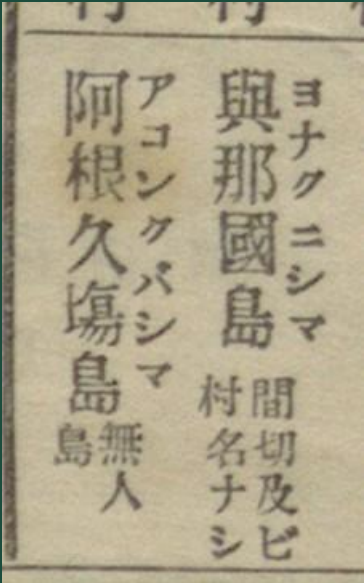 ヨナクニシマ
與那國島
間切及ビ
村名ナシ
アコンクバシマ
阿根久塲島
無人
島